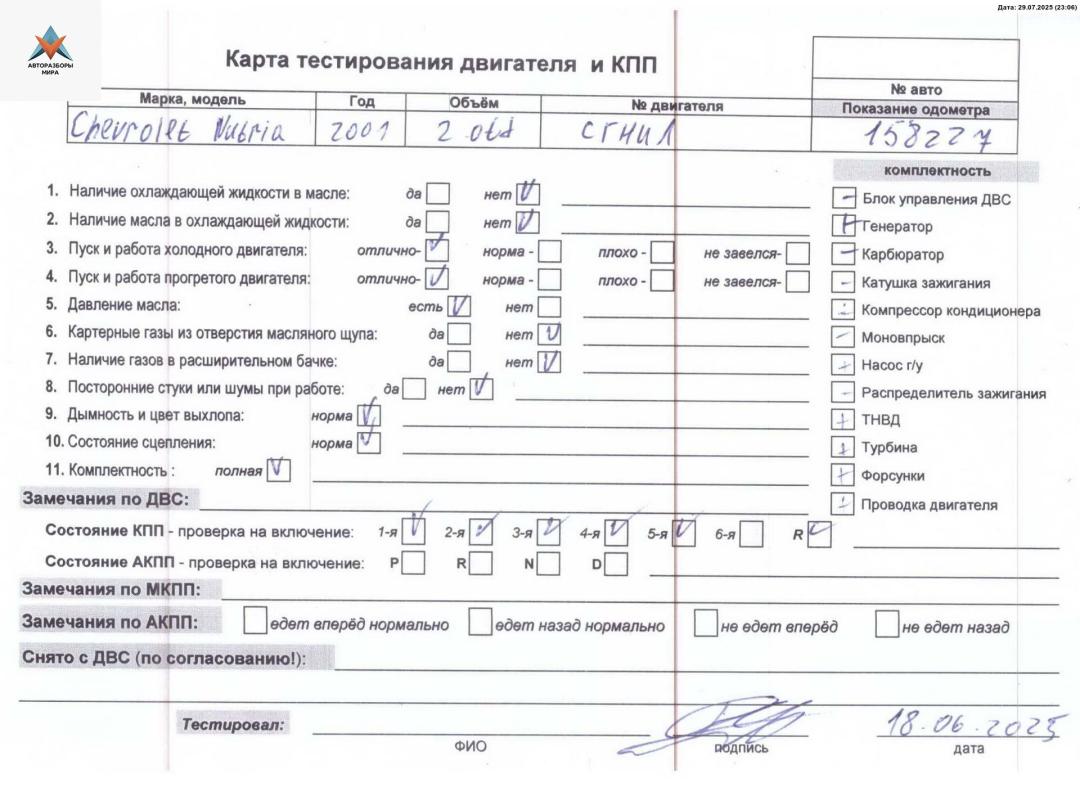 Дата: 29.07.2025 (23:06)
АВТОРАЗБОРЫ
МИРА
Карта тестирования двигателя и КПП
№ авто
Марка, модель Год Объём № двигателя Показание одометра
Chevrolet Nubria 2001 2 otd СГНИЛ 158227
комплектность
1. Наличие охлаждающей жидкости в масле: да нет V
2. Наличие масла в охлаждающей жидкости: да нет V
3. Пуск и работа холодного двигателя: отлично- V норма - плохо - не завелся-
4. Пуск и работа прогретого двигателя: отлично- V норма - плохо - не завелся-
5. Давление масла: есть V нет
6. Картерные газы из отверстия масляного щупа: да нет V
7. Наличие газов в расширительном бачке: да нет V
8. Посторонние стуки или шумы при работе: да нет V
9. Дымность и цвет выхлопа: норма V
10. Состояние сцепления: норма V
11. Комплектность : полная V
- Блок управления ДВС
+ Генератор
- Карбюратор
- Катушка зажигания
Компрессор кондиционера
- Моновпрыск
+ Насос г/у
- Распределитель зажигания
+ ТНВД
+ Турбина
+ Форсунки
+ Проводка двигателя
Замечания по ДВС:
Состояние КПП - проверка на включение: 1-я V 2-я V 3-я V 4-я V 5-я V 6-я R V
Состояние АКПП - проверка на включение: P R N D
Замечания по МКПП:
Замечания по АКПП: едет вперёд нормально едет назад нормально не едет вперёд не едет назад
Снято с ДВС (по согласованию!):
Тестировал: 18.06.2025
ФИО подпись дата